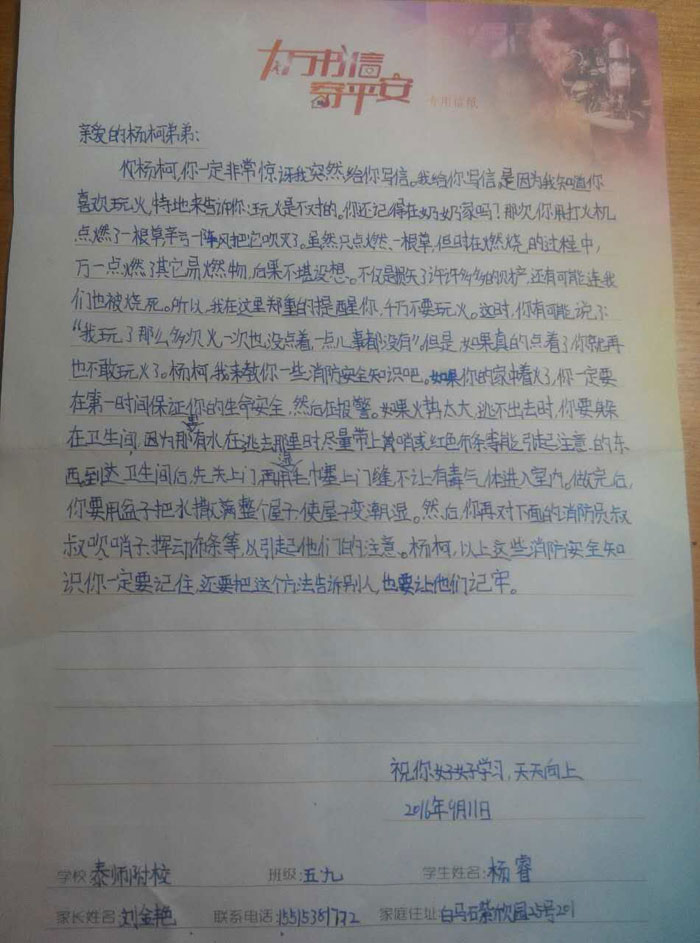 十万书信
寄平安
专用信纸
亲爱的杨柯弟弟:
你杨柯,你一定非常惊讶我突然给你写信。我给你写信,是因为我知道你
喜欢玩火,特地来告诉你:玩火是不对的。你还记得在奶奶家吗?那次你用打火机
点燃了一根草,幸亏一阵风把它吹灭了。虽然只点燃一根草,但时在燃烧的过程中,
万一点燃了其它易燃物,后果不堪设想。不仅是损失了许许多多的财产,还有可能连我
们也被烧死。所以,我在这里郑重的提醒你,千万不要玩火。这时,你有可能说:
“我玩了那么多次火,一次也没点着,一点儿事都没有”。但是,如果真的点着了,你就再
也不敢玩火了。杨柯,我来教你一些消防安全知识吧。如果你的家中着火了,你一定要
在第一时间保证你的生命安全,然后在报警。如果火势太大,逃不出去时,你要躲
在卫生间,因为那里有水在逃去那里时尽量带上口哨或红色布条等能引起注意的东
西,到达卫生间后,先关上门,再用湿毛巾塞上门缝,不让有毒气体进入室内。做完后,
你要用盆子把水撒满整个屋子,使屋子变潮湿。然后,你再对下面的消防员叔
叔吹哨子、挥动布条等,以引起他们的注意。杨柯,以上这些消防安全知
识你一定要记住,还要把这个方法告诉别人,也要让他们记牢。
祝你好好学习,天天向上
2016年9月11日
学校 泰师附校 班级:五九 学生姓名:杨睿
家长姓名 刘金艳 联系电话:15515381772 家庭住址 白马石紫欣园25号201